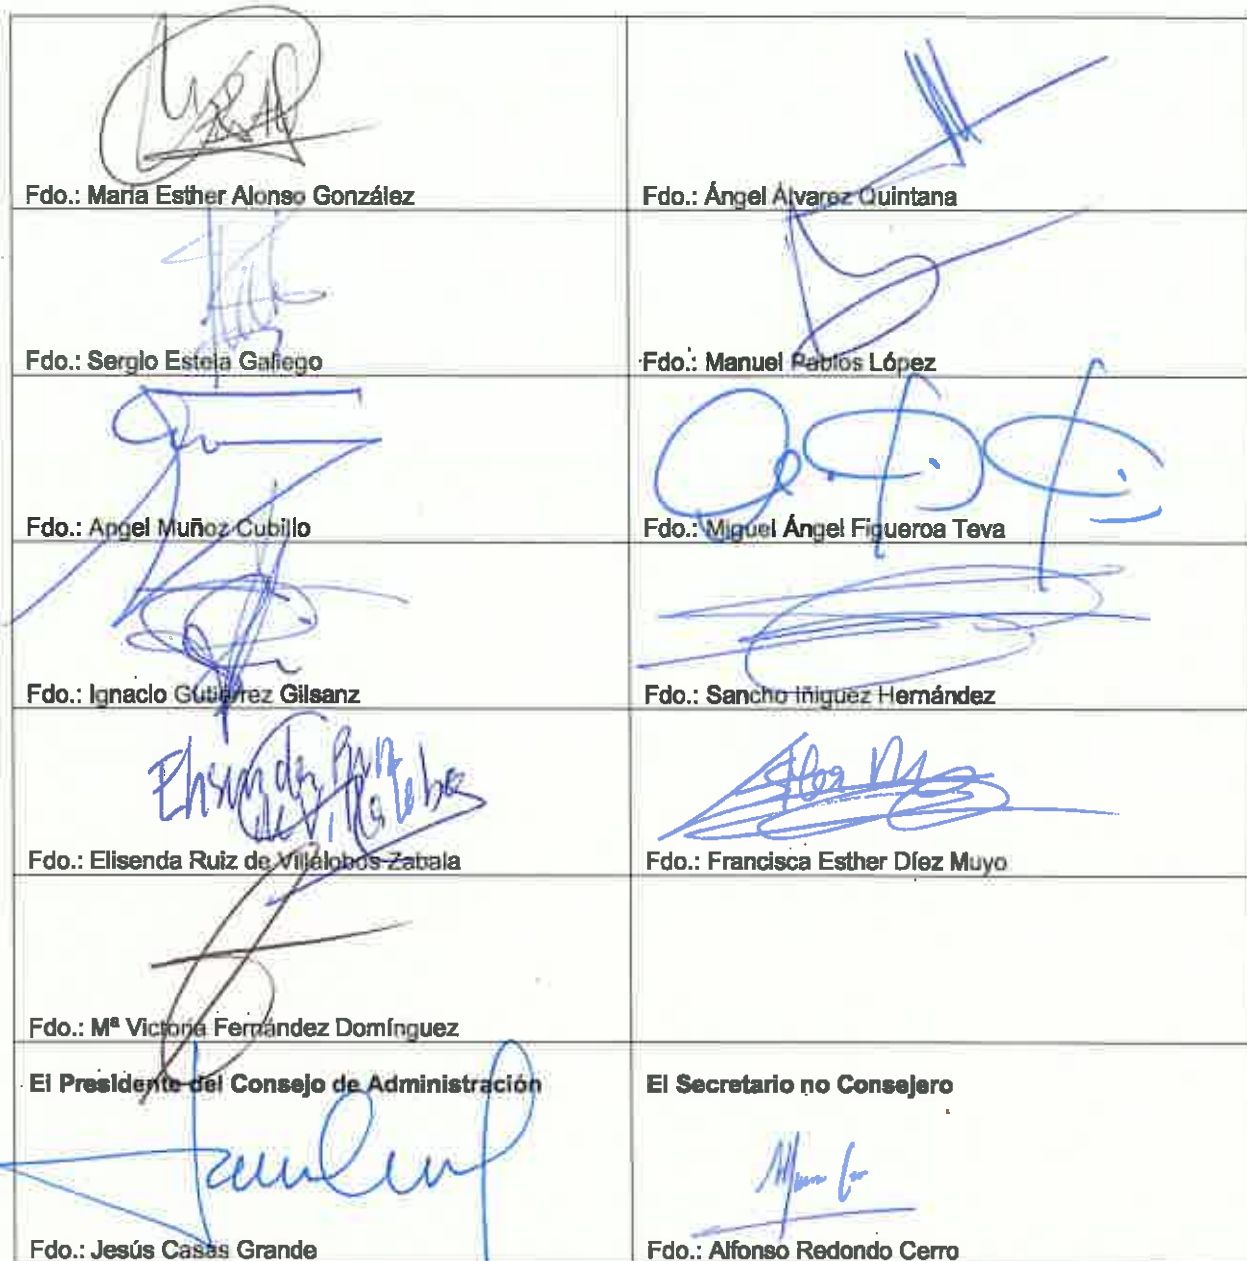 Fdo.: María Esther Alonso González
Fdo.: Ángel Álvarez Quintana
Fdo.: Sergio Estela Gallego
Fdo.: Manuel Pablos López
Fdo.: Angel Muñoz Cubillo
Fdo.: Miguel Ángel Figueroa Teva
Fdo.: Ignacio Gutiérrez Gilsanz
Fdo.: Sancho Iñiguez Hernández
Elisenda Ruiz
de Villalobos
Fdo.: Elisenda Ruiz de Villalobos Zabala
Fdo.: Francisca Esther Díez Muyo
Fdo.: Mª Victoria Fernández Domínguez
El Presidente del Consejo de Administración
El Secretario no Consejero
Fdo.: Jesús Casas Grande
Fdo.: Alfonso Redondo Cerro